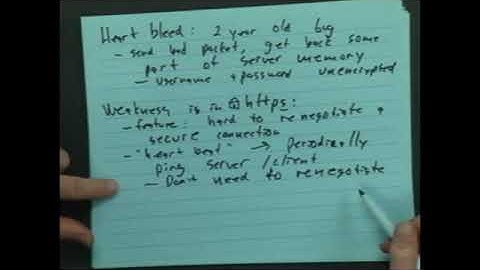 Heart bleed: 2 year old bug
- send bad packet, get back some
part of server memory
- username + password unencrypted
Weakness is in https:
- feature: hard to renegotiate a
secure connection
- "heart beat" → periodically
ping server/client
- Don't need to renegotiate